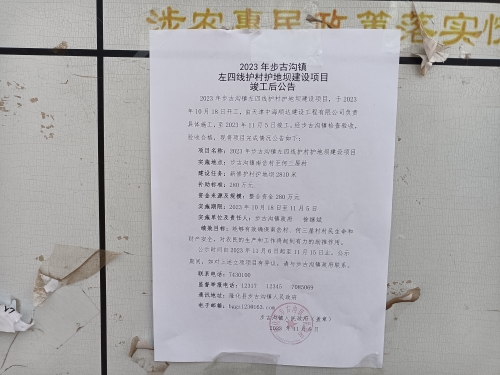 涉农惠民政策落实
2023 年步古沟镇
左四线护村护地坝建设项目
竣工后公告
2023 年步古沟镇左四线护村护地坝建设项目，于 2023
年 10 月 18 日开工，由天津中海顺达建设工程有限公司负责
具体施工，至 2023 年 11 月 5 日竣工，经步古沟镇检查验收，
验收合格，现将项目完成情况公告如下：
项目名称：2023 年步古沟镇左四线护村护地坝建设项目
实施地点：步古沟镇南岔村至何三屋村
建设任务：新修护村护地坝 2810 米
补助标准：280 万元
资金来源及规模：整合资金 280 万元
实施期限：2023 年 10 月 18 日至 11 月 5 日
实施单位及责任人：步古沟镇政府
绩效目标：能够有效确保南岔村、何三基村村民生命和
财产安全，对农民的生产和工作提起到有力的推推作用。
公示时间自 2023 年 11 月 6 日起至 11 月 15 日止。公示
期间，如对上述立项项目有异议，请与步古沟镇政府联系。
联系电话：7430100
监督举报电话：12317 12345 7085069
通讯地址：隆化县步古沟镇人民政府
电子邮箱：
步古沟镇人民政府（盖章）
2023 年 11 月 6 日